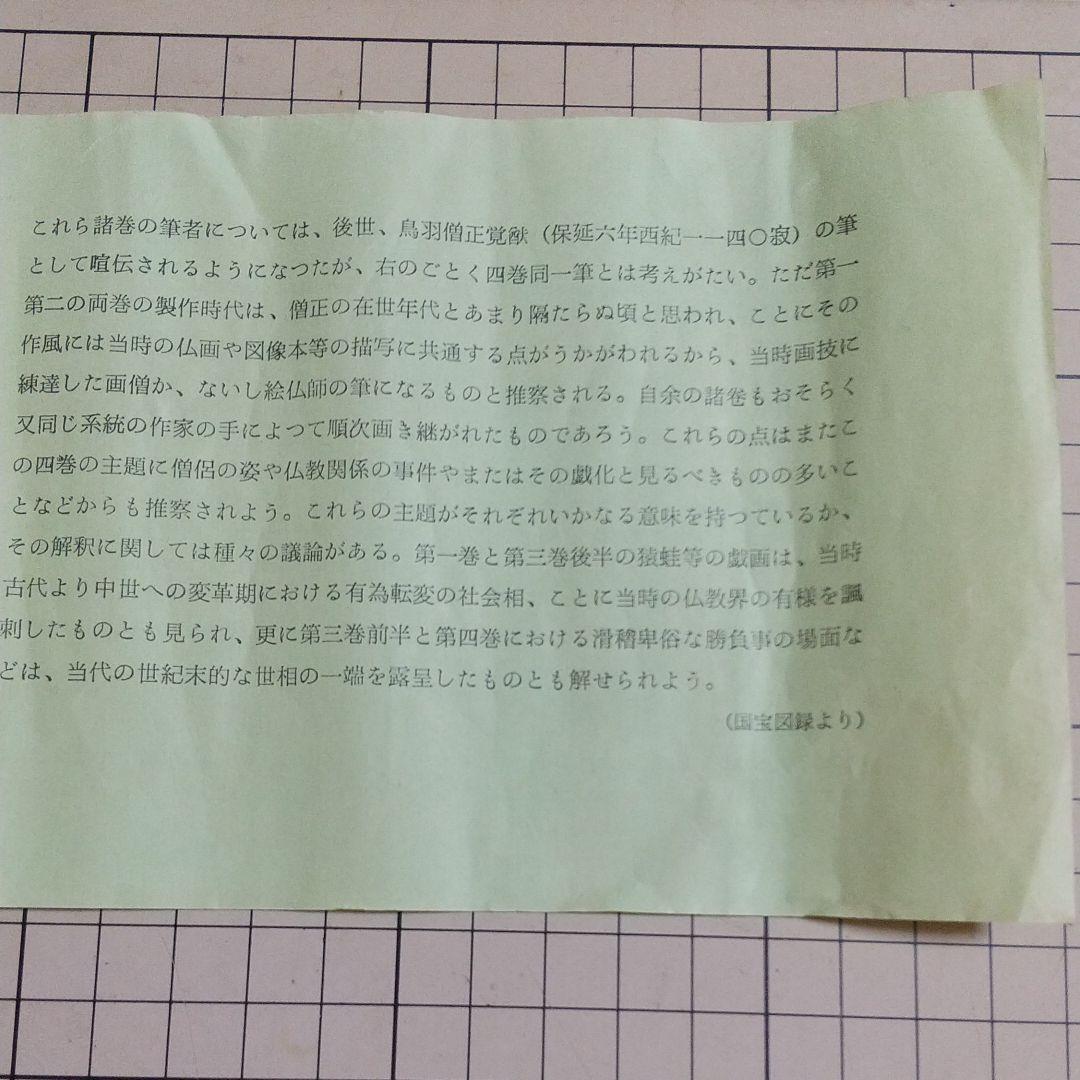 これら諸巻の筆者については、後世、鳥羽僧正覚猷（保延六年西紀一一四〇寂）の筆
として喧伝されるようになつたが、右のごとく四巻同一筆とは考えがたい。ただ第一
第二の両巻の製作時代は、僧正の在世年代とあまり隔たらぬ頃と思われ、ことにその
作風には当時の仏画や図像本等の描写に共通する点がうかがわれるから、当時画技に
練達した画僧か、ないし絵仏師の筆になるものと推察される。自余の諸巻もおそらく
又同じ系統の作家の手によつて順次画き継がれたものであろう。これらの点はまたこ
の四巻の主題に僧侶の姿や仏教関係の事件やまたはその戯化と見るべきものの多いこ
となどからも推察されよう。これらの主題がそれぞれいかなる意味を持つているか、
その解釈に関しては種々の議論がある。第一巻と第三巻後半の猿蛙等の戯画は、当時
古代より中世への変革期における有為転変の社会相、ことに当時の仏教界の有様を諷
刺したものとも見られ、更に第三巻前半と第四巻における滑稽卑俗な勝負事の場面な
どは、当代の世紀末的な世相の一端を露呈したものとも解せられよう。
（国宝図録より）